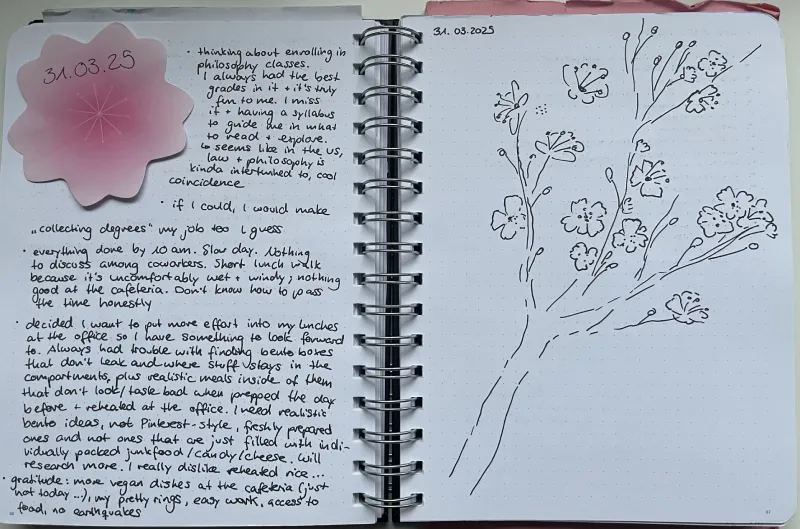 31.03.25
• thinking about enrolling in
philosophy classes.
I always had the best
grades in it + it's truly
fun to me. I miss
it + having a syllabus
to guide me in what
to read + explore.
↳ seems like in the US,
law + philosophy is
kinda intertwined to, cool
coincidence
• if I could, I would make
„collecting degrees" my job too I guess
• everything done by 10 am. Slow day. Nothing
to discuss among coworkers. Short lunch walk
because it's uncomfortably wet + windy; nothing
good at the cafeteria. Don't know how to pass
the time honestly
• decided I want to put more effort into my lunches
at the office so I have something to look forward
to. Always had trouble with finding bento boxes
that don't leak and where stuff stays in the
compartments, plus realistic meals inside of them
that don't look/taste bad when prepped the day
before + reheated at the office. I need realistic
bento ideas, not Pinterest-style, freshly prepared
ones and not ones that are just filled with indi-
vidually packed junkfood/candy/cheese. Will
research more. I really dislike reheated rice...
• gratitude: more vegan dishes at the cafeteria (just
not today --), my pretty rings, easy work, access to
food, no earthquakes
31.03.2025